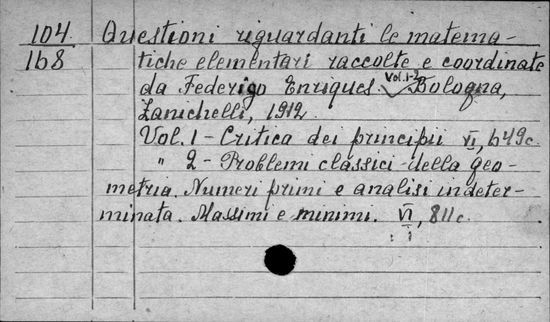 104 Questioni riguardanti le matema-
168 tiche elementari raccolte e coordinate
da Federigo Enriques. Vol. 1-2 Bologna,
Zanichelli, 1912.
Vol. 1 - Critica dei principii VI, 649c.
" 2 - Problemi classici della geo-
metria. Numeri primi e analisi indeter-
minata. Massimi e minimi. VI, 811c.